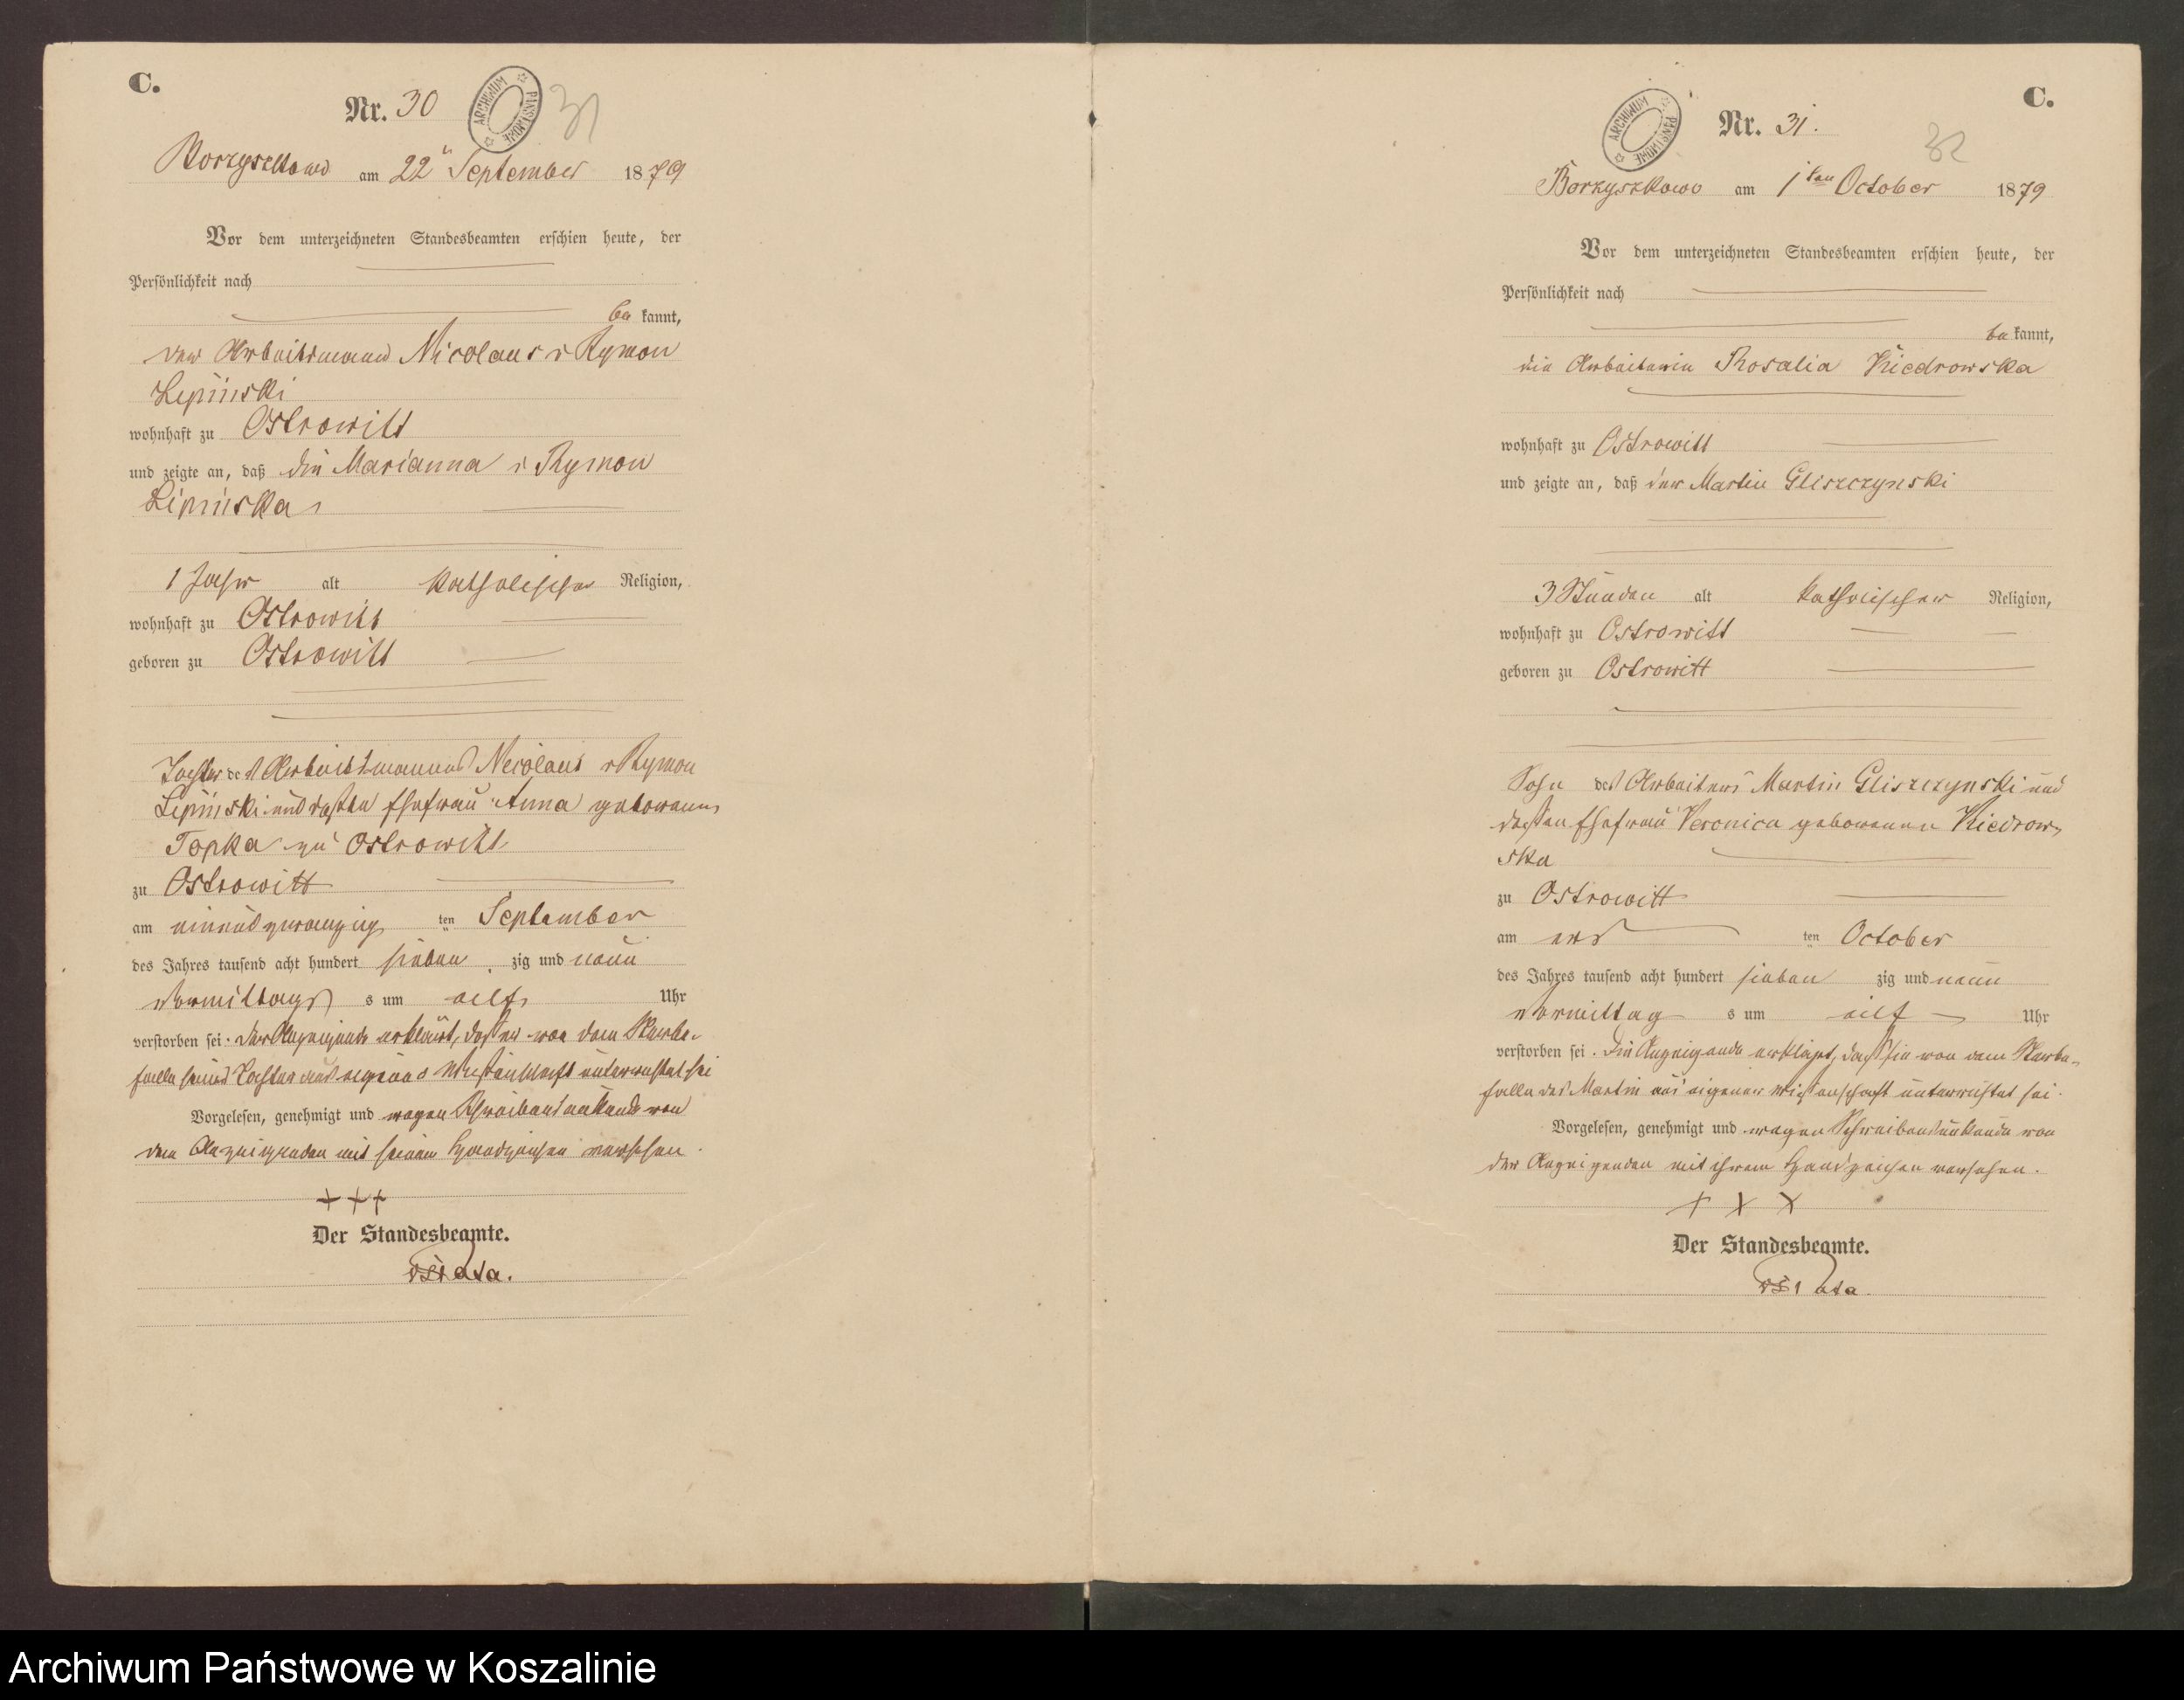 C.
Nr. 30
ARCHIWUM PAŃSTWOWE
31
Borzyszkowo am 22ⁿ September 1879
Vor dem unterzeichneten Standesbeamten erschien heute, der
Persönlichkeit nach
be kannt,
der Arbeitsmann Nicolaus v Rymon
Lipinski
wohnhaft zu Ostrowitt
und zeigte an, daß die Marianna v Rymon
Lipinska
1 Jahr alt katholischer Religion,
wohnhaft zu Ostrowitt
geboren zu Ostrowitt
Tochter des Arbeitsmannes Nicolaus v Rymon
Lipinski und dessen Ehefrau Anna geborenen
Topka zu Ostrowitt
zu Ostrowitt
am einundzwanzig ten September
des Jahres tausend acht hundert sieben zig und neun
Vormittags s um eilf Uhr
verstorben sei. Der Anzeigende erklärt, daß er von dem Sterbe-
falle seiner Tochter aus eigener Wissenschaft unterrichtet sei
Vorgelesen, genehmigt und wegen Schreibensunkunde von
dem Anzeigenden mit seinem Handzeichen versehen.
+ + +
Der Standesbeamte.
C.
Nr. 31.
ARCHIWUM PAŃSTWOWE
32
Borzyszkowo am 1ten October 1879
Vor dem unterzeichneten Standesbeamten erschien heute, der
Persönlichkeit nach
be kannt,
die Arbeiterin Rosalia Kiedrowska
wohnhaft zu Ostrowitt
und zeigte an, daß der Martin Gliszczynski
3 Stunden alt katholischer Religion,
wohnhaft zu Ostrowitt
geboren zu Ostrowitt
Sohn des Arbeiters Martin Gliszczynski und
dessen Ehefrau Veronica geborenen Kiedrow-
ska
zu Ostrowitt
am ers ten October
des Jahres tausend acht hundert sieben zig und neun
Vormittag s um eilf Uhr
verstorben sei. Die Anzeigende erklärt, daß sie von dem Sterbe-
falle des Martin aus eigener Wissenschaft unterrichtet sei.
Vorgelesen, genehmigt und wegen Schreibensunkunde von
der Anzeigenden mit ihrem Handzeichen versehen.
+ + +
Der Standesbeamte.
Archiwum Państwowe w Koszalinie